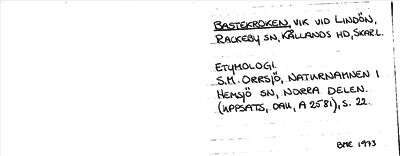 BASTEKROKEN, VIK VID LINDÖN,
RACKEBY SN, KÅLLANDS HD, SKARL.
ETYMOLOGI.
S.M. ORRSJÖ, NATURNAMNEN I
HEMSJÖ SN, NORRA DELEN.
(UPPSATS, OAU, A 2581), S. 22.
BME 1973